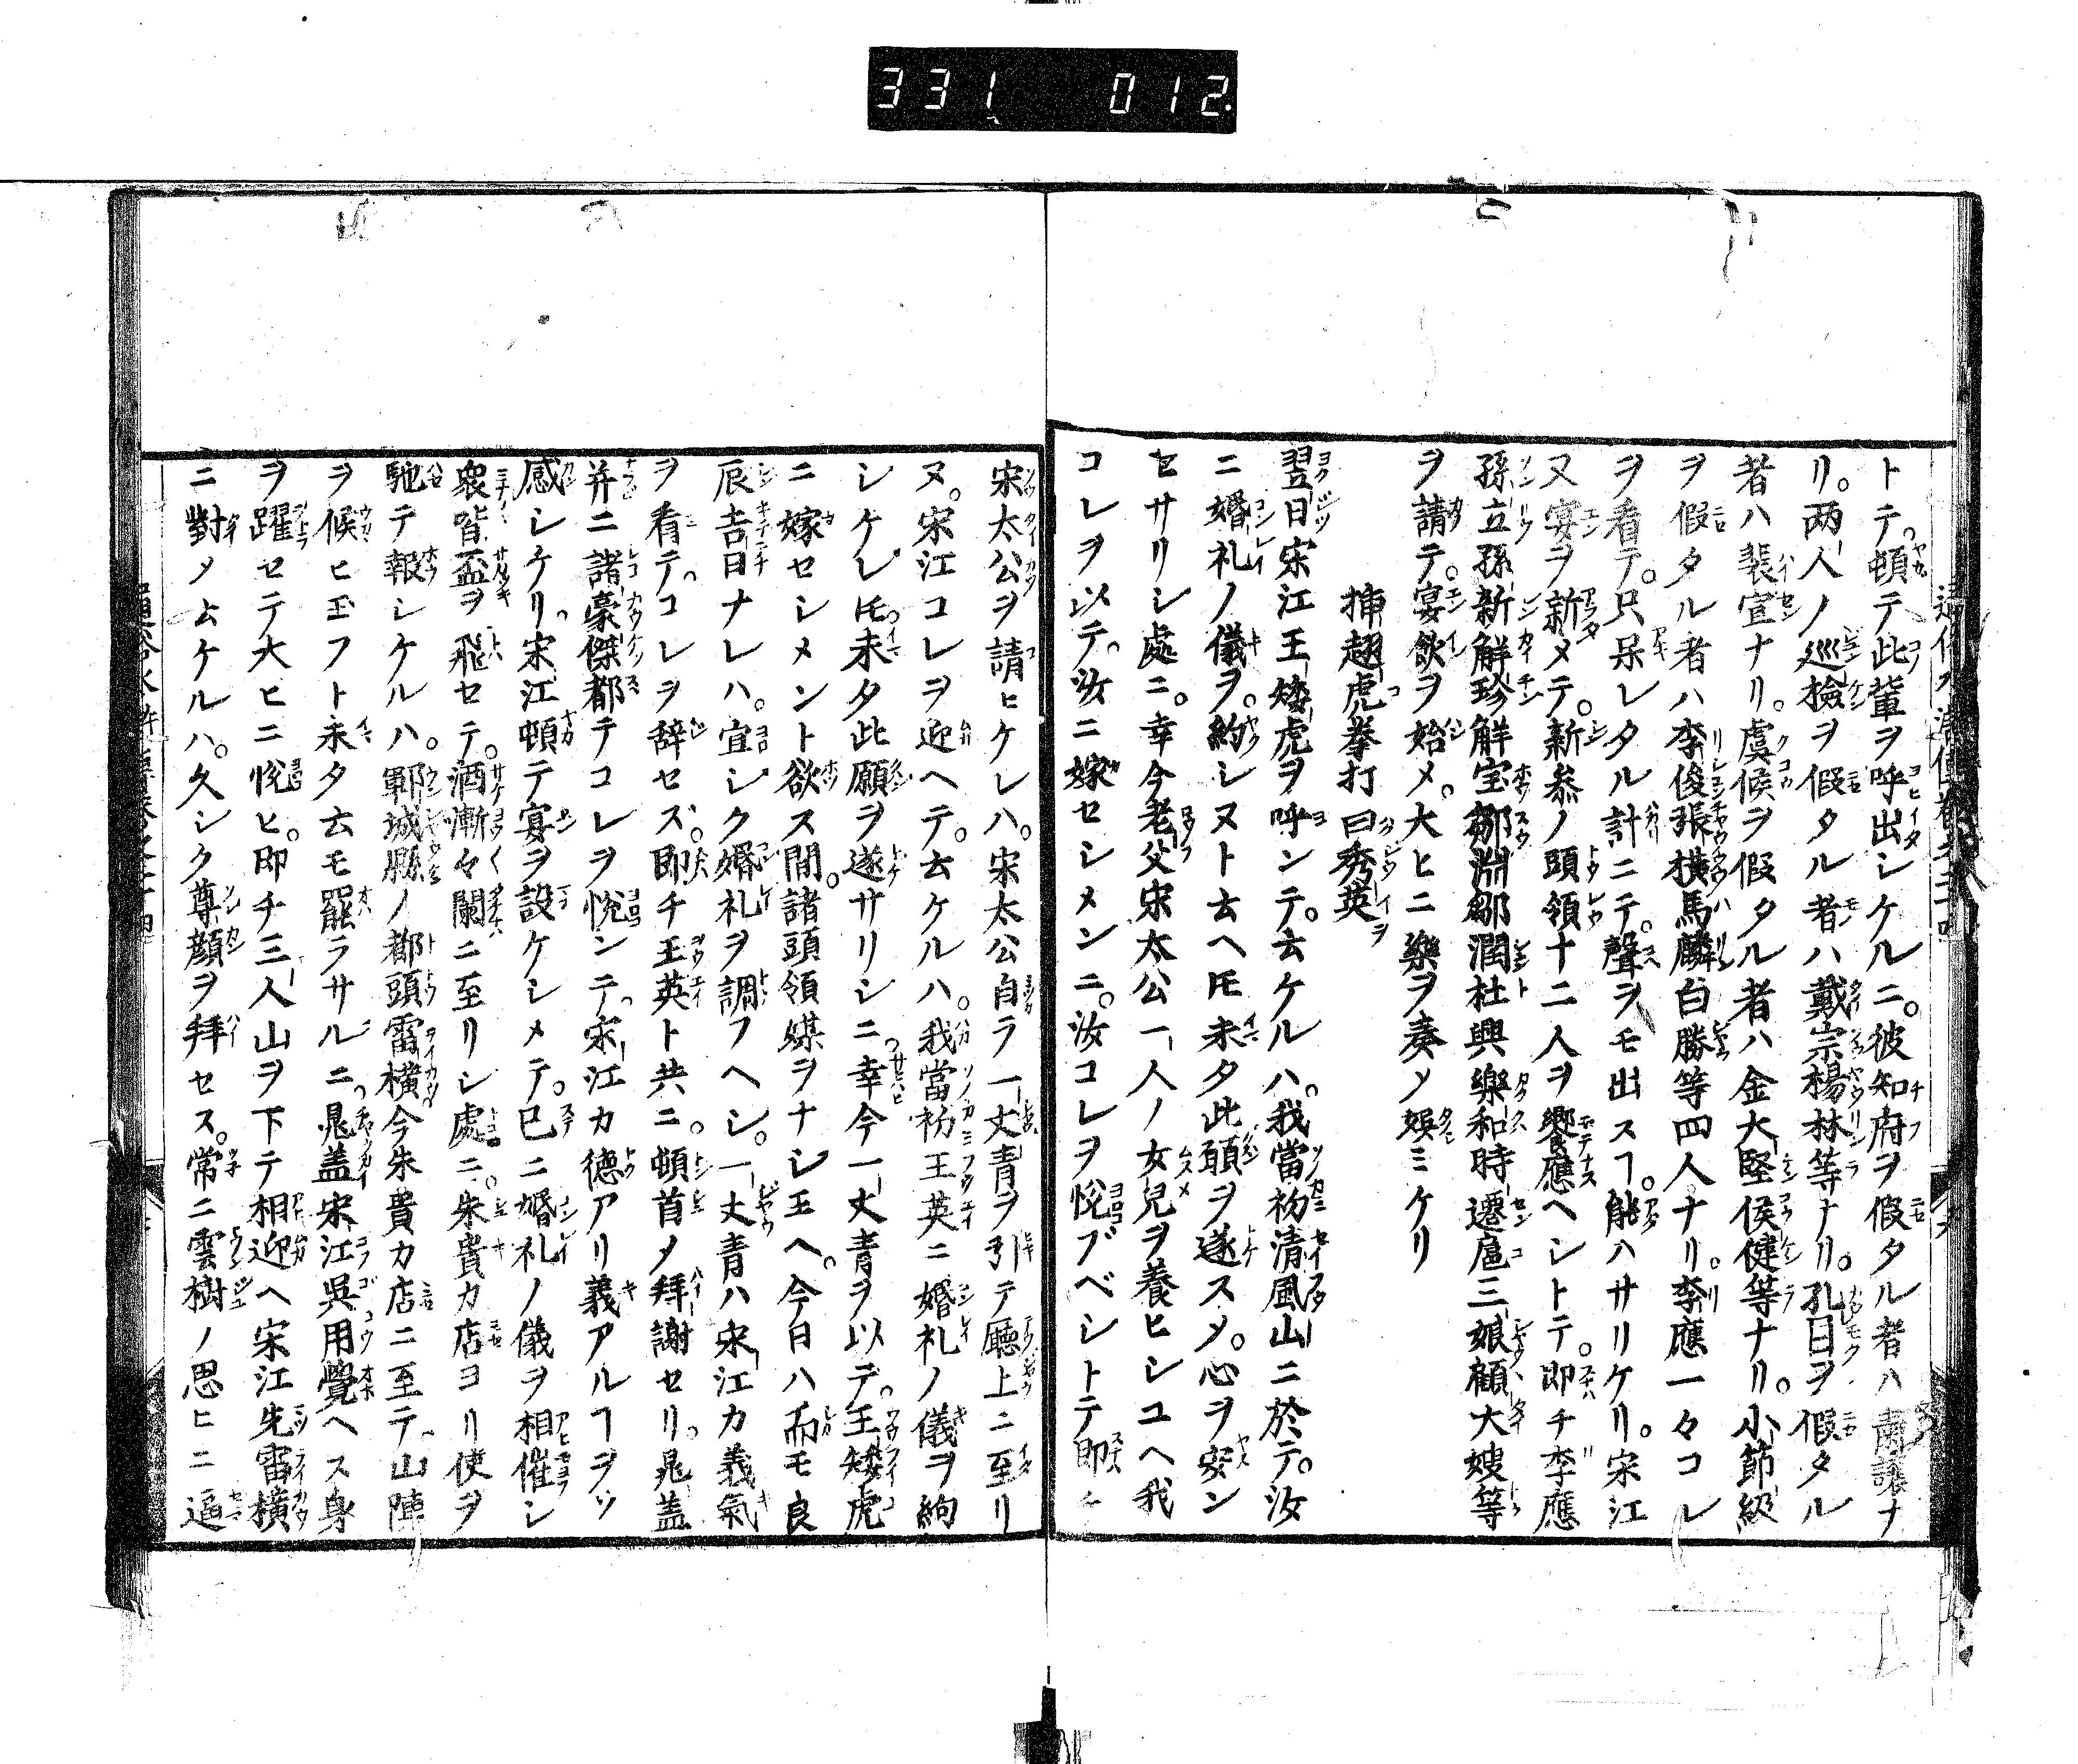 331 012.
トテ。頓テ此輩ヲ呼出シケルニ。彼知府ヲ假タル者ハ蕭讓ナ
リ。两人ノ巡檢ヲ假タル者ハ戴宗楊林等ナリ。孔目ヲ假タル
者ハ裴宣ナリ。虞候ヲ假タル者ハ金大堅侯健等ナリ。小節級
ヲ假タル者ハ李俊張横馬麟白勝等四人ナリ。李應一々コレ
ヲ看テ。只呆レタル計ニテ。聲ヲモ出スヿ。能ハサリケリ。宋江
又宴ヲ新メテ。新叅ノ頭領十二人ヲ饗應ヘントテ。即チ李應
孫立孫新解珍解宝鄒淵鄒潤杜興樂和時遷扈三娘顧大嫂等
ヲ請テ。宴飲ヲ始メ。大ヒニ樂ヲ奏メ娯ミケリ
挿趐虎拳打白秀英
翌日宋江王矮虎ヲ呼ンテ。云ケルハ。我當初清風山ニ於テ。汝
ニ婚礼ノ儀ヲ。約シヌト云ヘ𪜈未タ此願ヲ遂スメ。心ヲ安ン
セサリシ處ニ。幸今老父宋太公一人ノ女兒ヲ養ヒシユヘ我
コレヲ以テ。汝ニ嫁セシメンニ。汝コレヲ悅ブベシトテ即チ
宋太公ヲ請ヒケレハ。宋太公自ラ一丈青ヲ引テ廳上ニ至リ
ヌ。宋江コレヲ迎ヘテ。云ケルハ。我當初王英ニ婚礼ノ儀ヲ約
シケレ𪜈未タ此願ヲ遂サリシニ。幸今一丈青ヲ以テ。王矮虎
ニ嫁セシメント欲ス間。諸頭領媒ヲナシ玉ヘ。今日ハ而モ良
辰吉日ナレハ。宜シク婚礼ヲ調フヘシ。一丈青ハ宋江カ義氣
ヲ看テ。コレヲ辞セズ。即チ王英ト共ニ。頓首メ拜謝セリ。晁盖
并ニ諸豪傑都テコレヲ悅ンテ。宋江カ德アリ義アルヿヲソ
感シケリ。宋江頓テ宴ヲ設ケシメテ。已ニ婚礼ノ儀ヲ相催シ
衆皆盃ヲ飛セテ。酒漸々闌ニ至リシ處ニ。朱貴カ店ヨリ使ヲ
馳テ報シケルハ。鄆城縣ノ都頭雷横今朱貴カ店ニ至テ。山陣
ヲ候ヒ玉フト未タ云モ罷ラサルニ。晁盖宋江吳用覺ヘス身
ヲ躍セテ大ヒニ悅ヒ。即チ三人山ヲ下テ相迎ヘ宋江先雷横
ニ對メ云ケルハ。久シク尊顔ヲ拜セス。常ニ雲樹ノ思ヒニ逼